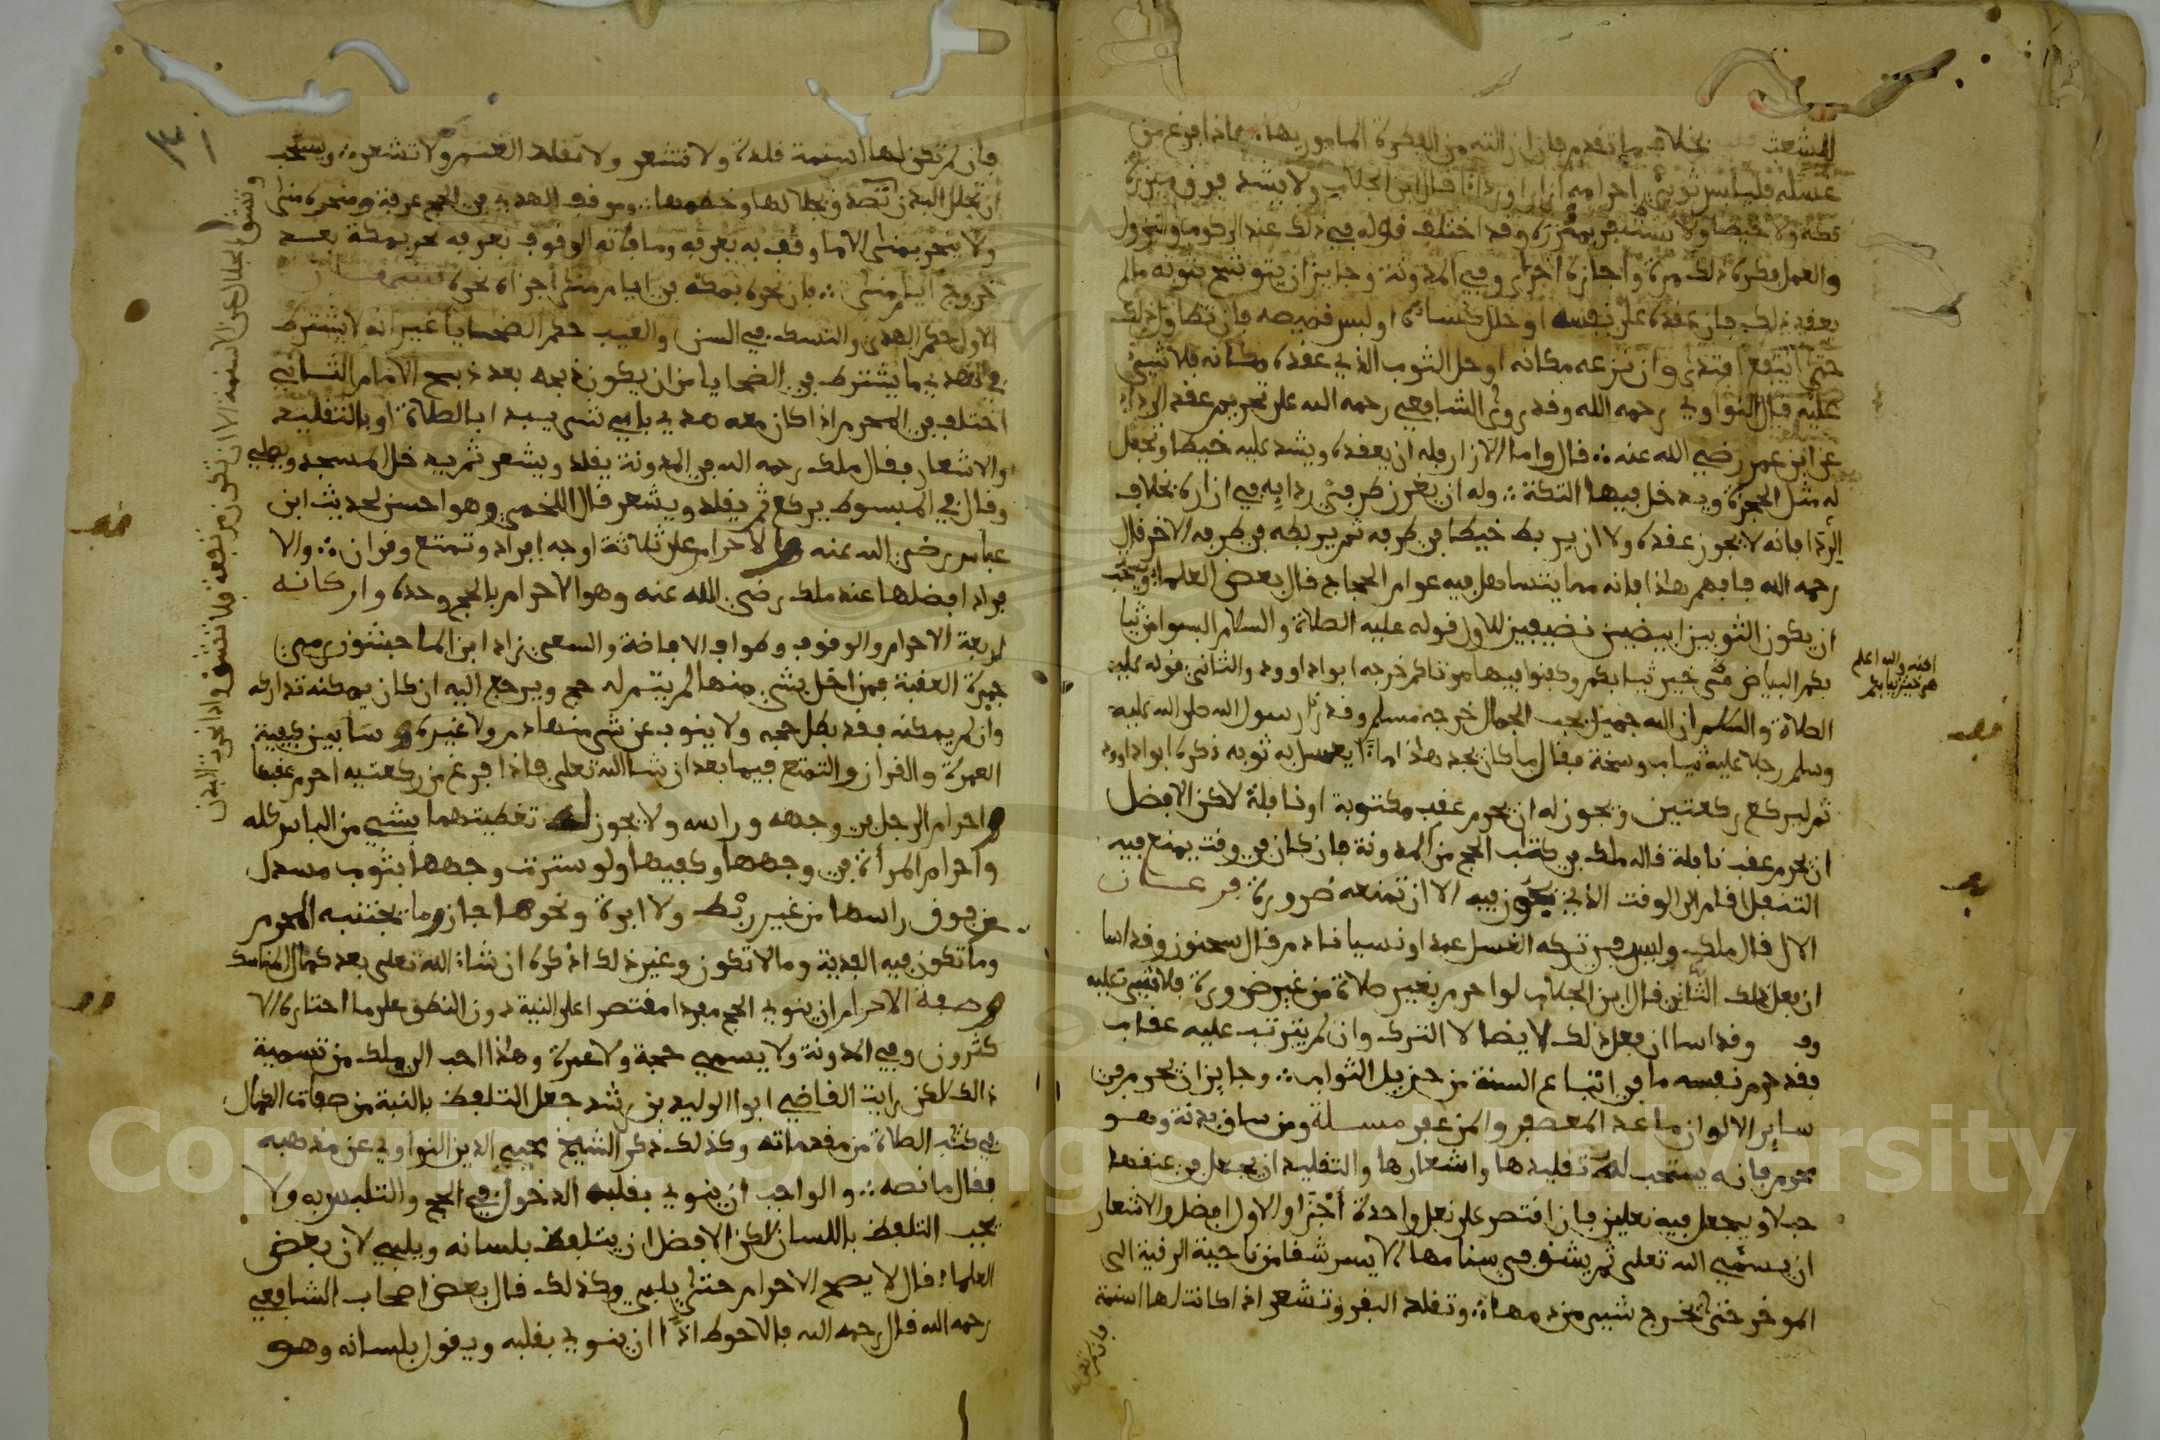 الشعث بخلاف ما تقدم فان ازالته من الفطرة المامور بها فاذا فرغ من
غسله فليلبس ثوبي احرامه ازارا ورداء قال ابن الجلاب ولا يشد فوق ميزره
تكة ولا خيطا ولا يستثفر بميزره وقد اختلف قوله في ذلك عند الركوب والنزول
والعمل فكره ذلك مرة واجازه اخرى وفي المدونة وجايز ان يتوشح بثوبه ما لم
يعقد ذلك فان عقده على نفسه او خلل كساه او لبس قميصه فان تطاول ذلك
حتى انتفع افتدى وان نزعه مكانه او حل الثوب الذي عقده مكانه فلا شيء
عليه قال النواوي رحمه الله وقد روى الشافعي رحمه الله على تحريم عقد الرداء
عن ابن عمر رضي الله عنه قال واما الازار فله ان يعقده ويشد عليه خيطا ويجعل
له مثل الحجزة ويدخل فيها التكة وله ان يغرز طرفي ردايه في ازاره بخلاف
الردا فانه لا يجوز عقده ولا ان يربط خيطا في طرفه ثم يربطه في طرفه الاخر قال
رحمه الله فافهم هذا فانه مما يتساهل فيه عوام الحجاج قال بعض العلماء ويستحب
ان يكون الثوبين ابيضين نضيفين للاول قوله عليه الصلاة والسلام البسوا من ثيا
بكم البياض فهي خير ثيابكم وكفنوا فيها موتاكم خرجه ابو داوود والثاني قوله عليه
الصلاة والسلام ان الله جميل يحب الجمال خرجه مسلم وقد راى رسول الله صلى الله عليه
وسلم رجلا عليه ثياب وسخة فقال ما كان يجد هذا ماء يغسل به ثوبه ذكره ابو داوود
ثم ليركع ركعتين ويجوز له ان يحرم عقب مكتوبة او نافلة لاكن الافضل
ان يحرم عقب نافلة قاله ملك في كتاب الحج من المدونة فان كان في وقت يمنع فيه
التنفل اقام الى الوقت الذي يجوز فيه الا ان تمنعه ضرورة فرعان
الال قال ملك وليس في تركه الغسل عمدا او نسيانا دم قال سحنون وقد اسا
ان فعل ذلك الثاني قال ابن الجلاب لو احرم بغير صلاة من غير ضرورة فلا شيء عليه
وقد اسا ان فعل ذلك ايضا لا الترك وان لم يترتب عليه عقاب
فقد حرم نفسه ما في اتباع السنة من جزيل الثواب وجايز ان يحرم في
ساير الالوان ما عدا المعصفر والمزعفر مسلة ومن ساق بدنة وهو
محرم فانه يستحب له تقليدها واشعارها والتقليد ان يجعل في عنقها
حبلا ويجعل فيه نعلين فان اقتصر على نعل واحدة اجزا والاول افضل والاشعار
ان يسمي الله تعلى ثم يشق في سنامها الايسر شقا من ناحية الرقبة الى
الموخر حتى يخرج شيء من دمها وتقلد البقر وتشعر اذا كانت لها اسنمة
فان لم تكن
والله اعلم
من خير ثيابكم
فان لم تكن لها اسنمة قلدت ولا تشعر ولا تقلد الغنم ولا تشعر ويستحب
ان تجلل البدن تصدق بجلالها وخطمها وموقف الهدي في الحج عرفة ومنحره منى
ولا ينحر بمنى الا ما وقف به بعرفة وما فاته الوقوف بعرفة نحر بمكة بعد
خروج ايام منى فان نحره بمكة في ايام منى اجزاه نحره
الاول حكم الهدي والنسك في السن والعيب حكم الضحايا غير انه لا يشترط
في الهدي ما يشترط في الضحايا من ان يكون ذبحه بعد ذبح الامام الثاني
اختلف في المحرم اذا كان معه هدي باي شيء يبدا بالصلاة او بالتقليد
والاشعار فقال ملك رحمه الله في المدونة يقلد ويشعر ثم يدخل المسجد ويصلي
وقال في المبسوط يركع ثم يقلد ويشعر قال اللخمي وهو احسن لحديث ابن
عباس رضي الله عنه والاحرام على ثلاثة اوجه افراد وتمتع وقران والا
فراد افضلها عند ملك رضي الله عنه وهو الاحرام بالحج وحده واركانه
اربعة الاحرام والوقوف وطواف الافاضة والسعي زاد ابن الماجشون رمي
جمرة العقبة فمن اخل بشيء منها لم يتم له حج ويرجع اليه ان كان يمكنه تداركه
وان لم يمكنه فقد بطل حجه ولا ينوب عن شيء منها دم ولا غيره وسابين كيفية
العمرة والقران والتمتع فيما بعد ان شاء الله تعلى فاذا فرغ من ركعتيه احرم عقبها
واحرام الرجل في وجهه وراسه ولا يجوز له تغطيتهما بشيء من الباس كله
واحرام المراة في وجهها وكفيها ولو سترت وجهها بثوب مسدل
من فوق راسها من غير ربط ولا ابرة ونحوها جاز وما يجتنبه المحرم
وما تكون فيه الفدية وما لا تكون وغير ذلك اذكره ان شاء الله تعلى بعد كمال المناسك
وصفة الاحرام ان ينوي الحج مفردا مقتصرا على النية دون النطق على ما اختاره الا
كثرون وفي المدونة ولا يسمي حجة ولا عمرة وهذا احب الى ملك من تسمية
ذالك لكن رايت القاضي ابوا الوليد بن رشد جعل التلفظ بالنية من صفات الكمال
في كتب الصلاة من مقدماته وكذلك ذكر الشيخ محيي الدين النواوي عن مذهبه
فقال ما نصه والواجب ان ينوي بقلبه الدخول في الحج والتلبس به ولا
يجب التلفظ باللسان لكن الافضل ان يتلفظ بلسانه ويلبي لان بعض
العلماء قال لا يصح الاحرام حتى يلبي وكذلك قال بعض اصحاب الشافعي
رحمه الله قال رحمه الله فالاحوط اذًا ان ينوي بقلبه ويقول بلسانه وهو
وتشق الجلال عن الاسنمة الا ان تكون مرتفعة فلا تشق واذا نحرت البدن